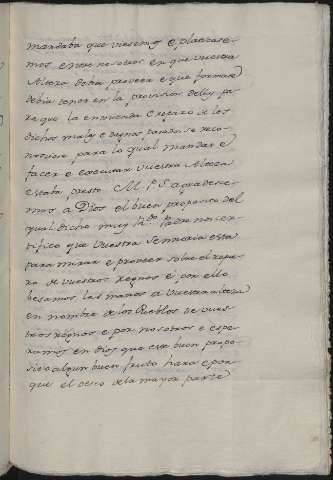 mandaba que viesemos e platicase-
mos entre nosotros en que vuestra
Alteza debia proveer e que forma
debia tener en la provision dello pa-
ra que la enmienda e reparo de los
dichos males e dapnos cada se reco-
nosciese para lo qual mandar e
facer e executar Vuestra Alteza
estaba presto M. P. S. agradesce-
mos a Dios el buen proposito del
qual dicho muy R.do Padre nos cer-
tifico que Vuestra Sennoria esta
para mirar e proveer sobre el repa-
ro de vuestros regnos e por ello
besamos las manos a Vuestra Alteza
en nombre de los Pueblos de vues-
tros regnos e por nosotros e espe-
ramos en Dios que este buen propo-
sito algun buen fruto hara e por-
que el peso de la mayor parte